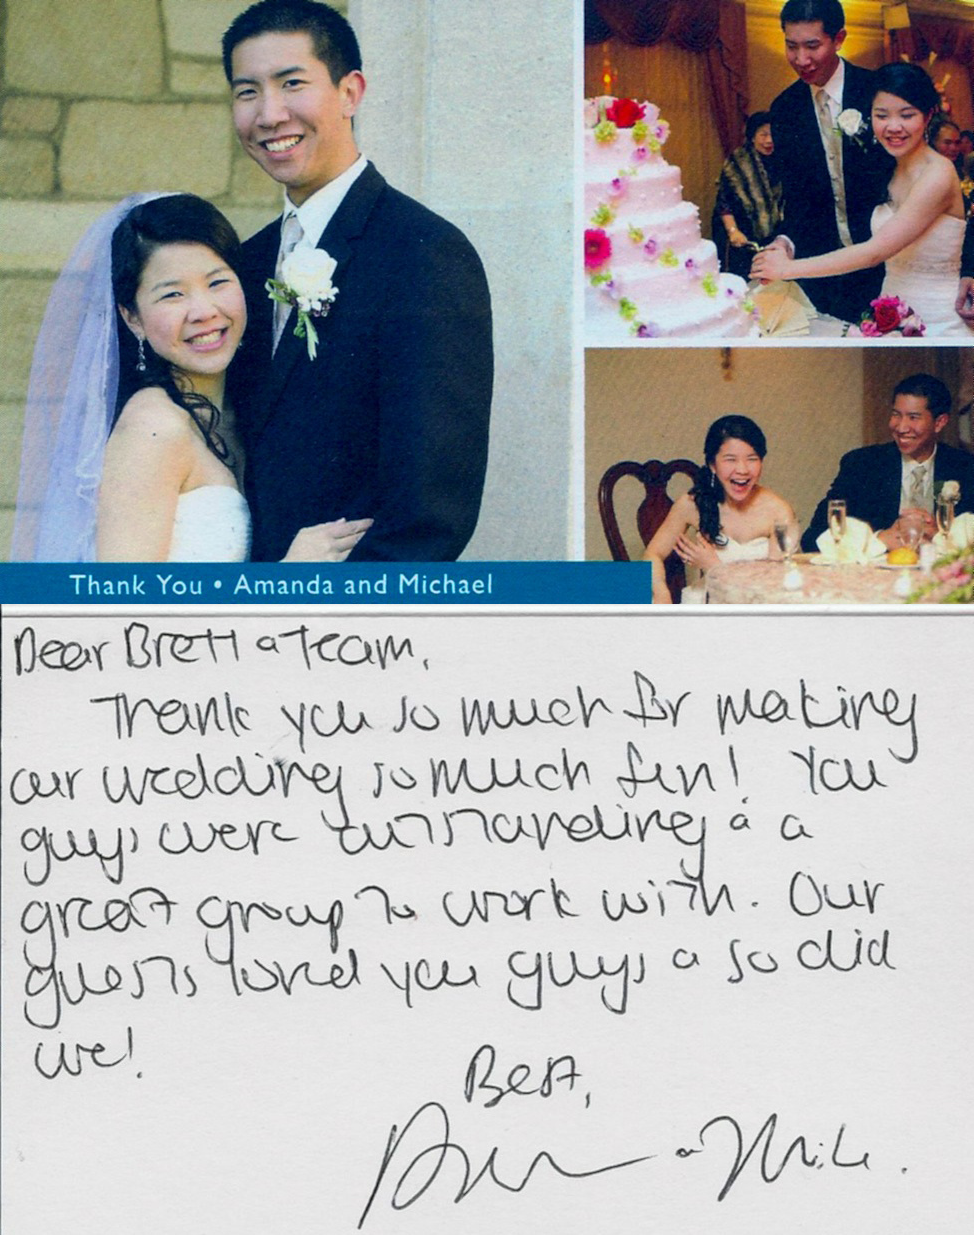 Thank You • Amanda and Michael
Dear Brett & Team,
Thank you so much for making
our wedding so much fun! You
guys were outstanding & a
great group to work with. Our
guests loved you guys & so did
we!
Best,
& Mike.